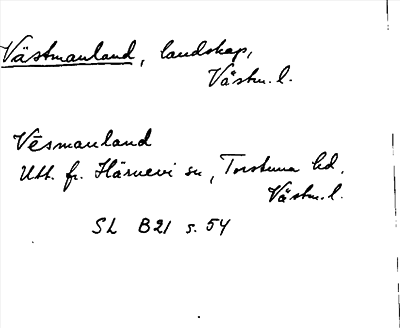 Västmanland, landskap,
Västm. l.
Vēsmanland
Utt. fr. Härnevi sn, Torstuna hd,
Västm. l.
SL B21 s. 54